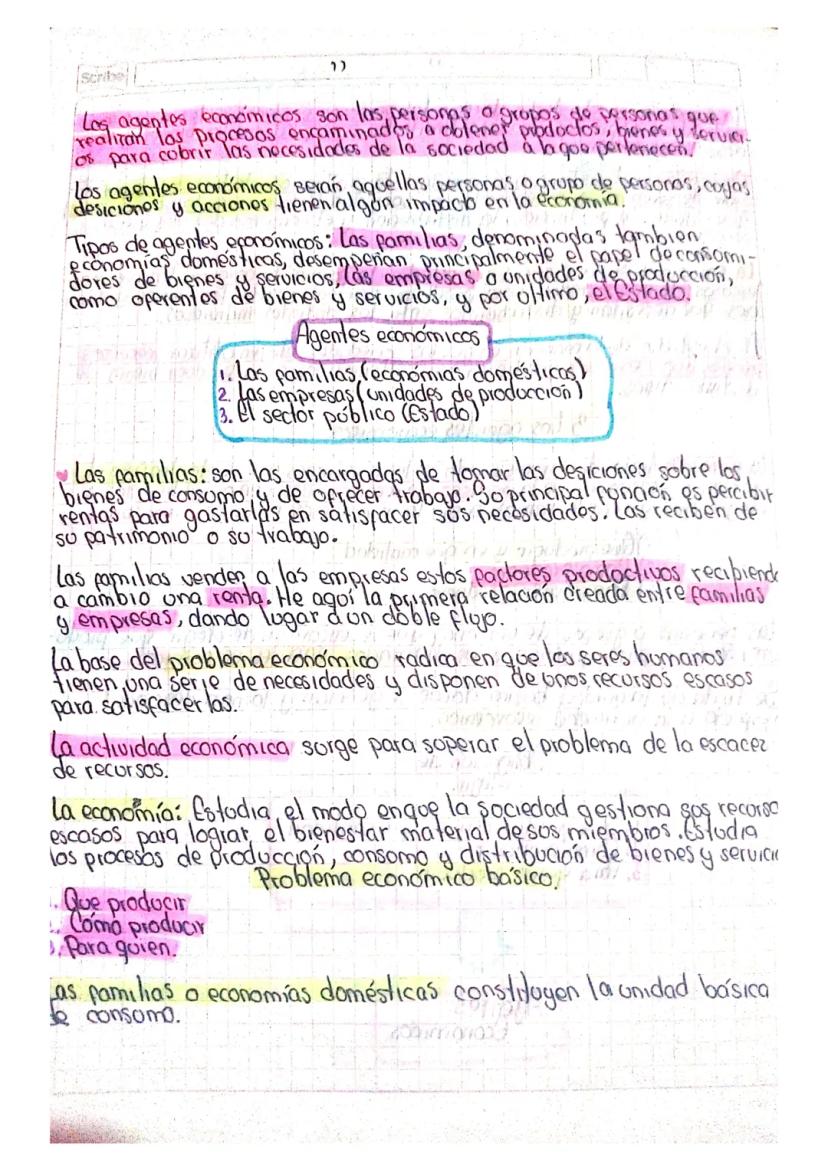 Scribe
11
Los agentes económicos son las personas o grupos de personas que
realizan los procesos encaminados a obtener productos, bienes y servici-
os para cubrir las necesidades de la sociedad a la que pertenecen.
Los agentes económicos serán aquellas personas o grupo de personas, cuyas
desiciones y acciones tienen algún impacto en la economía.
Tipos de agentes económicos: Las familias, denominadas tambien
economías domésticas, desempeñan principalmente el papel de consumi-
dores de bienes y servicios, las empresas o unidades de producción,
como oferentes de bienes y servicios, y por ultimo, el Estado.
Agentes económicos
1. Las familias (económias domésticas)
2. Las empresas (unidades de producción)
3. El sector público (Estado)
Las familias: son las encargadas de tomar las desiciones sobre los
bienes de consumo y de ofrecer trabajo. Su principal función es percibir
rentas para gastarlas en satisfacer sus necesidades. Las reciben de
su patrimonio o su trabajo.
Las familias venden a las empresas estos factores productivos recibiend
a cambio una renta. He aquí la primera relación creada entre familias
y empresas, dando lugar a un doble flujo.
La base del problema económico radica en que los seres humanos
tienen una serie de necesidades y disponen de unos recursos escasos
para satisfacerlas.
La actividad económica sorge para superar el problema de la escacez
de recursos.
La economía: Estudia el modo en que la sociedad gestiona sus recurso
escasos para lograr el bienestar material de sus miembros. Estudia
los procesos de producción, consumo y distribución de bienes y servici
Problema económico básico.
. Que producir
. Cómo producir
. Para quien.
as familias o economías domésticas constituyen la unidad básica
de consumo.